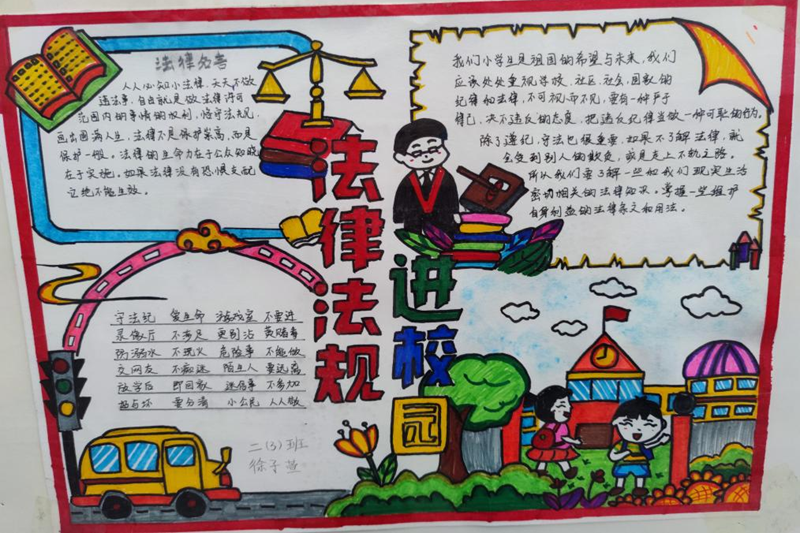 法律名言
人人必知小法律,天天不做
违法事,自由就是做法律许可
范围内的事情的权利,恪守法规,
画出圆满人生,法律不是保护崇高,而是
保护一般。法律的生命力在于公众知晓
在于实施。如果法律没有恐惧支撑
它绝不能生效。
法律法规
进校园
我们小学生是祖国的希望与未来,我们
应承处处重视学校、社区、社会、国家的
纪律和法律,不可视而不见,要有一种严于
律己,决不违反的态度,把违反纪律当做一种可耻的行为。
除了遵纪,守法也很重要,如果不了解法律,就
会受到别人的欺负,或是走上不轨之路。
所以我们要了解一些和我们现实生活
密切相关的法律知识,掌握一些维护
自身利益的法律条文和用法。
守法纪 爱生命 游戏室 不要进
录像厅 不涉足 更别沾 黄赌毒
防溺水 不玩火 危险事 不能做
交网友 不痴迷 陌生人 要远离
放学后 即回家 迷信事 不参加
益与坏 要分清 小公民 人人做
二(3)班
徐子